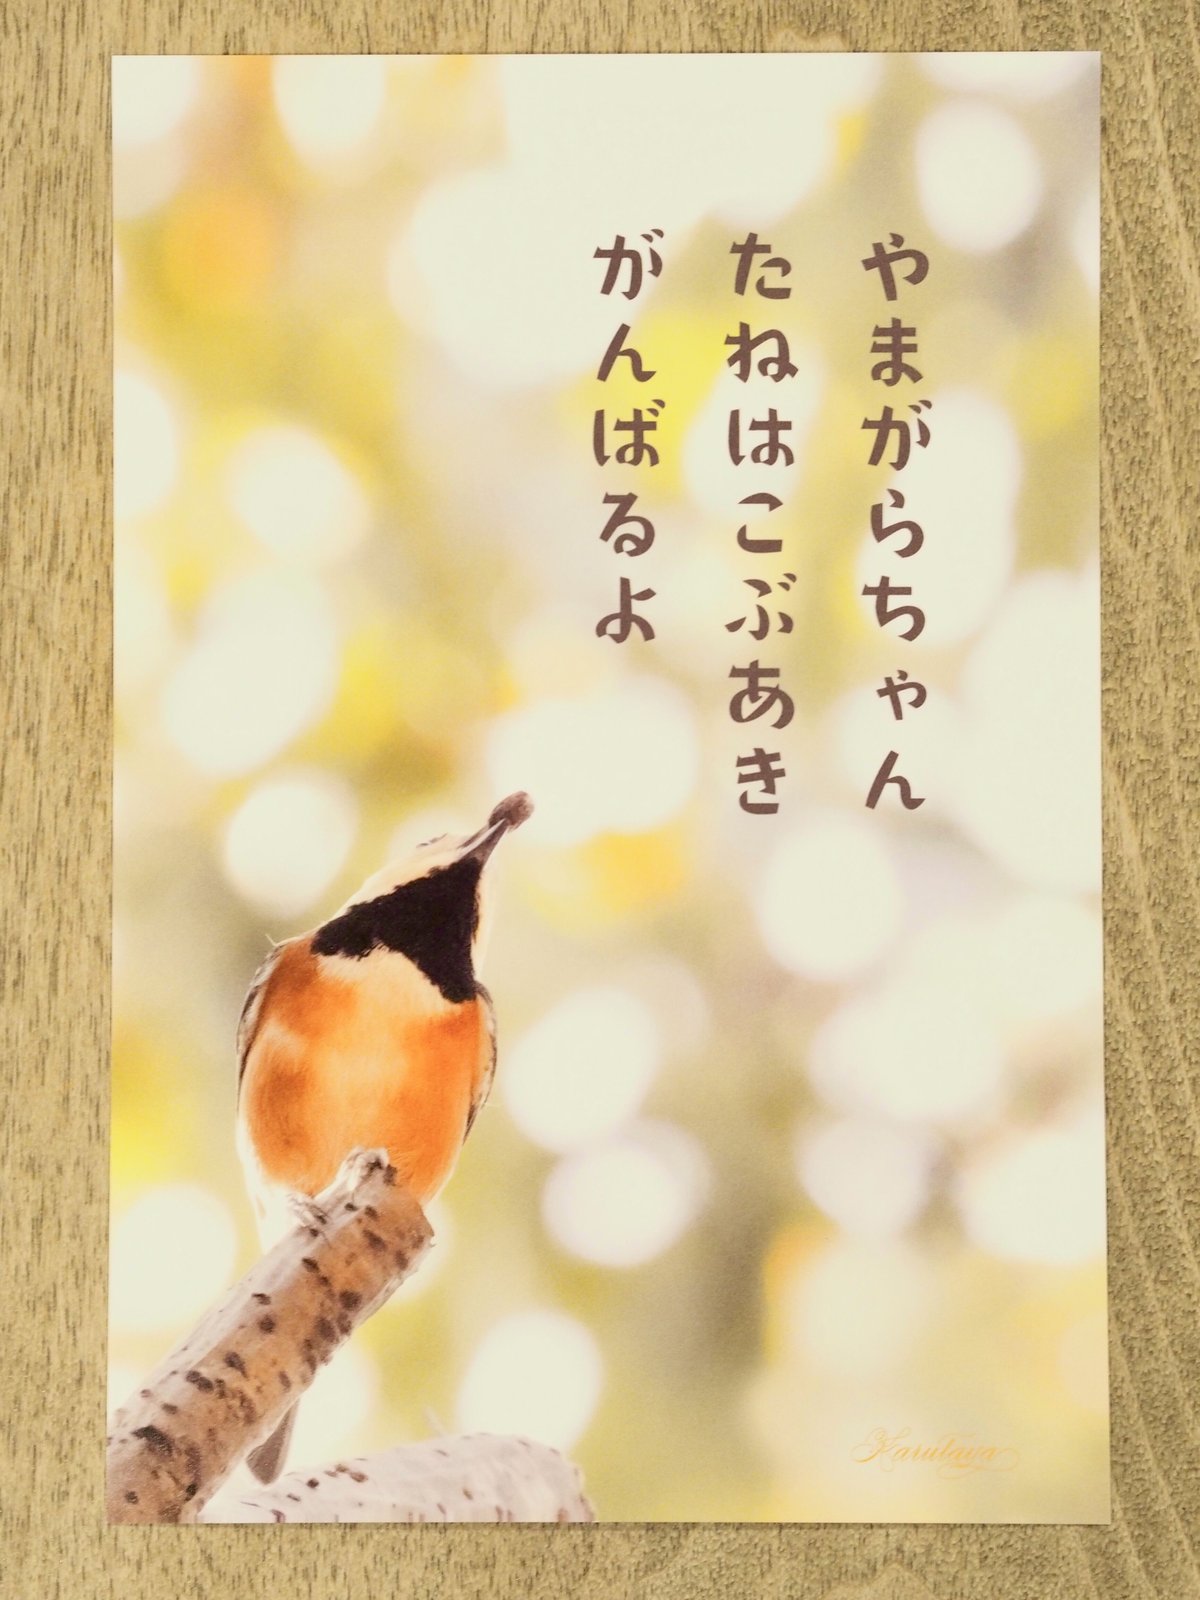 やまがらちゃん
たねはこぶあき
がんばるよ
Karutaya